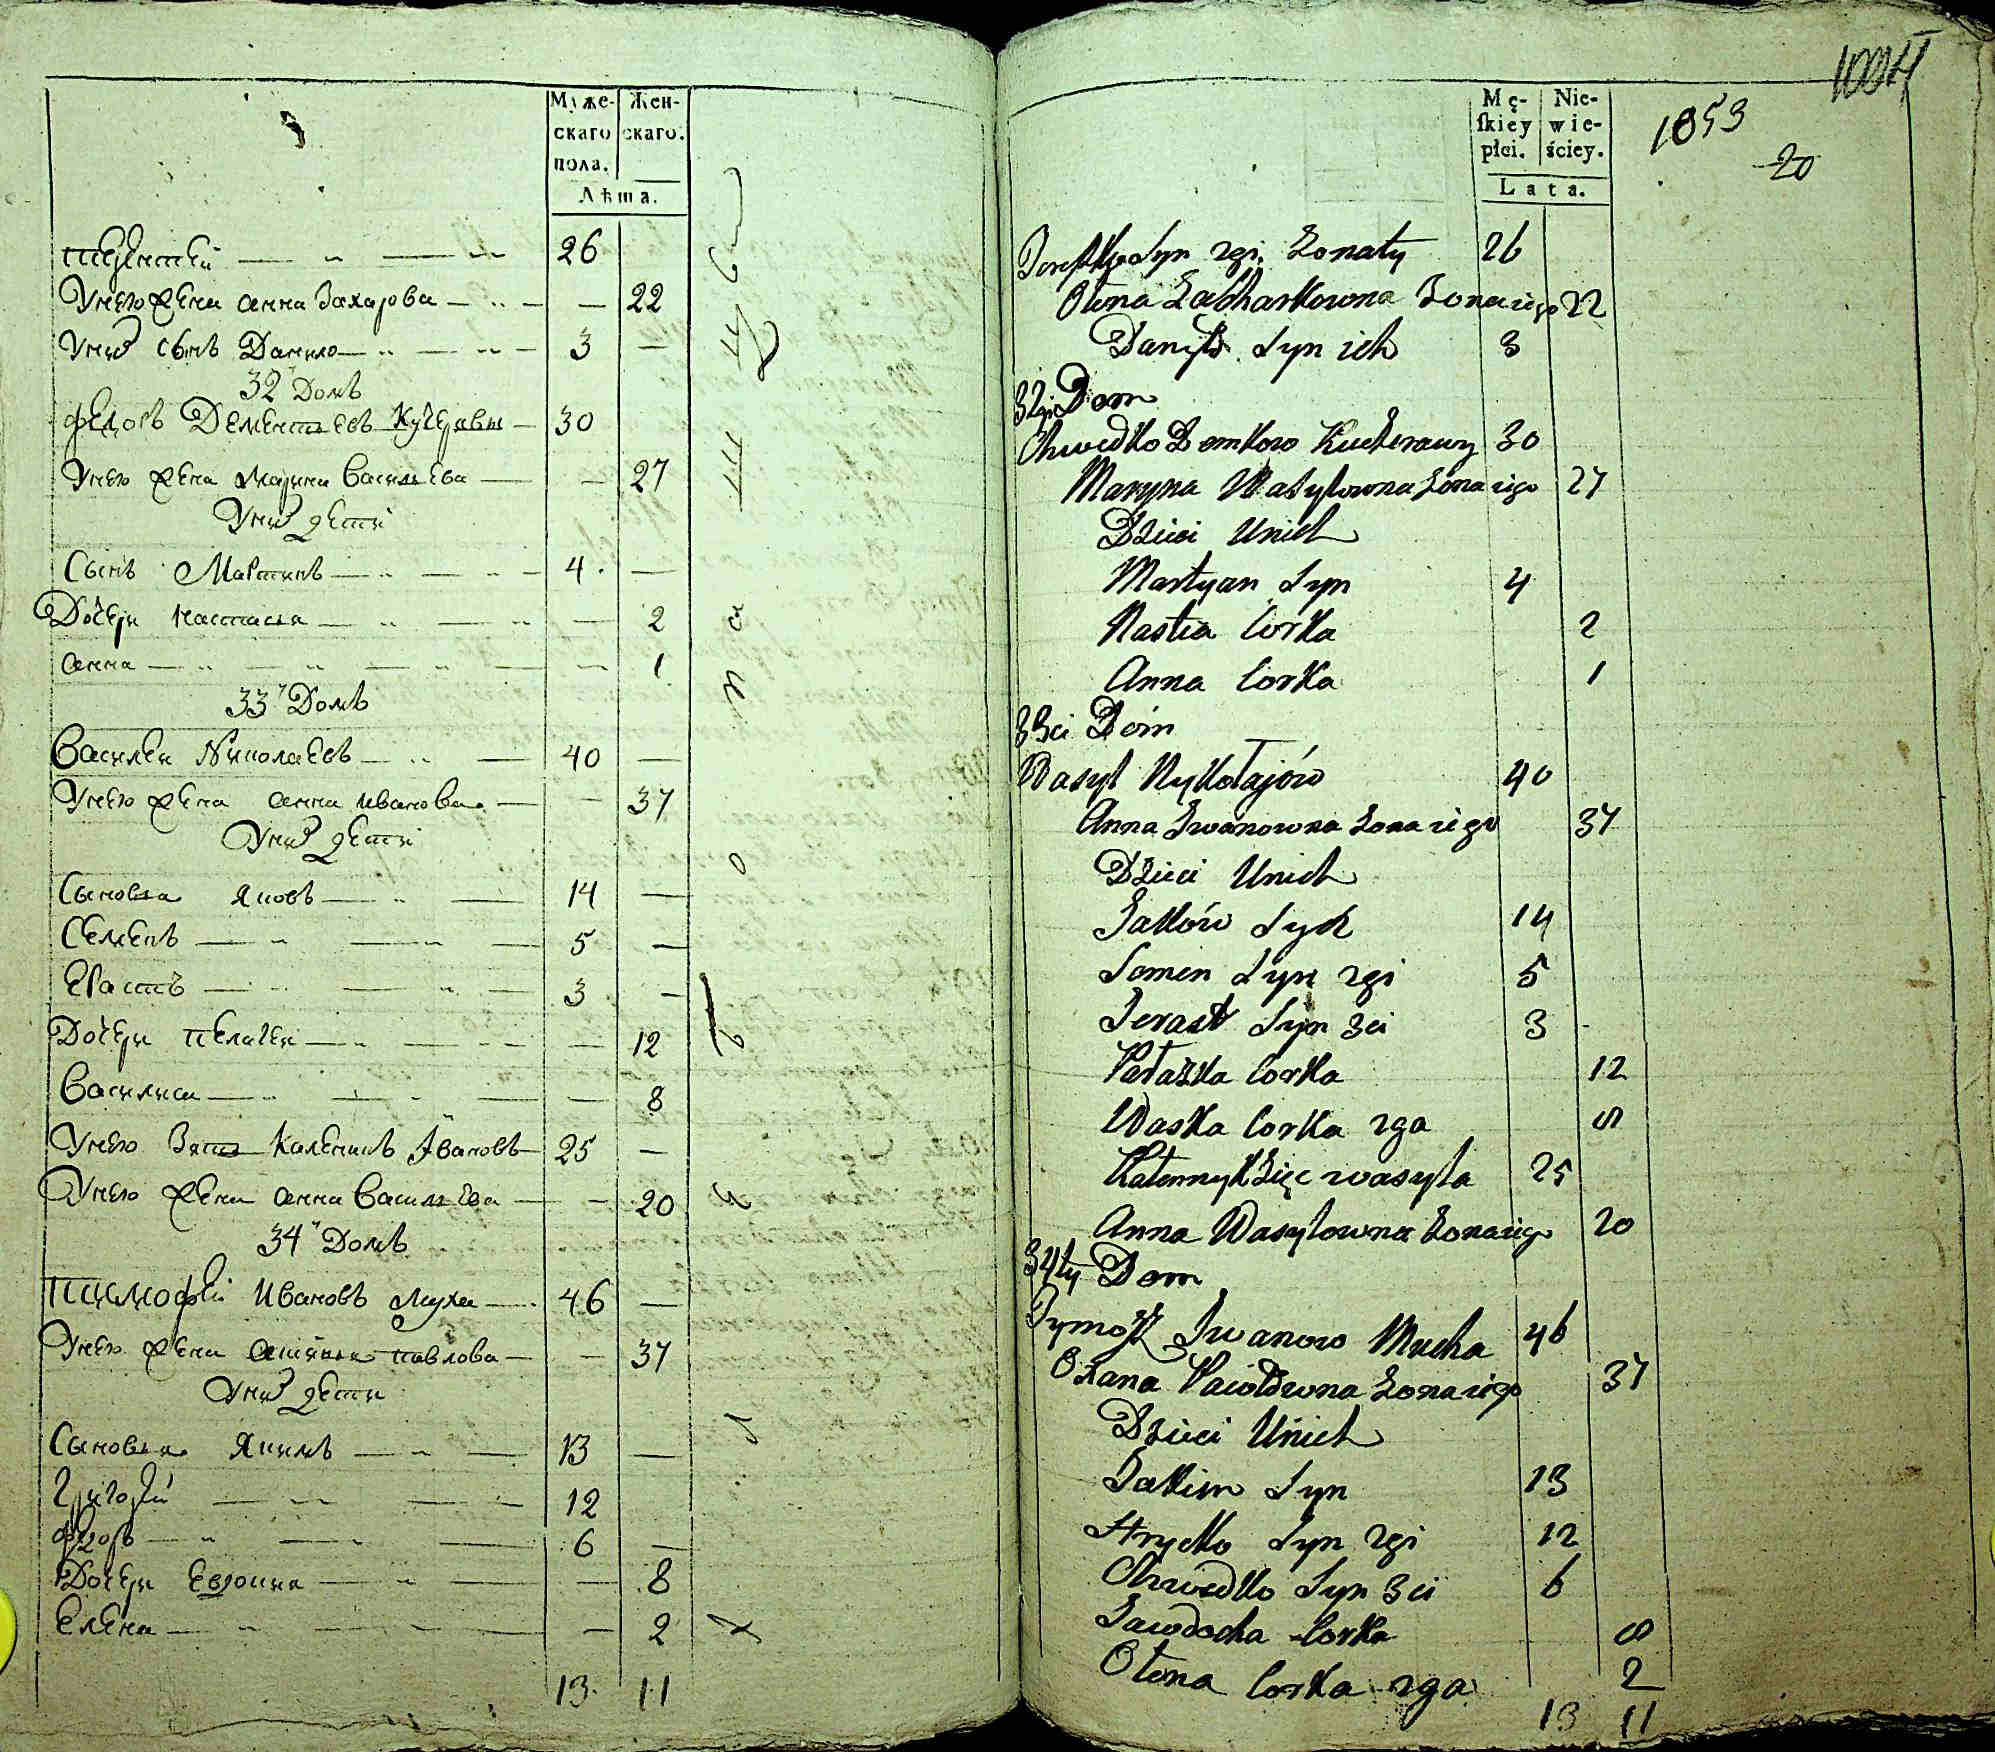 Муже- Жен-
скаго скаго.
пола.
Лѣта.
Терентей 26
У него жена анна Захарова 22
У них сынъ Данило 3
32й Домъ
федоръ Дементьевъ Кучерявы 30
У него жена Марина Васильева 27
У них дети
Сынъ Мартинъ 4
Дочери Настасья 2
анна 1
33й Домъ
Василей Николаевъ 40
У него жена анна иванова 37
У них дети
Сыновья Яковъ 14
Семенъ 5
Ерастъ 3
Дочери пелагея 12
Василиса 8
У него Зять Каленикъ Ивановъ 25
У него жена анна Васильева 20
34й Домъ
тимофей Ивановъ Муха 46
У него жена павлова 37
У них дети
Сыновья Якимъ 13
Григорей 12
Федоръ 6
Дочери Евдокия 8
Елена 2
13 11
Mę- Nie-
ſkiey wie-
płci. ściey.
Lata.
1004
1853
20
Syn 2gi Żonaty 26
Ołena Zacharkowna Żona iego 22
Danyło Syn ich 3
32gi Dom
Chwedko Demkow Kucherawy 30
Maryna Wasylowna Żona iego 27
Dzieci Unich
Martyan Syn 4
Nastia Corka 2
Anna Corka 1
33ci Dóm
Wasyl Nykołajów 40
Anna Iwanowna Żona iego 37
Dzieci Unich
Jakków Syn 14
Semen Syn 2gi 5
Jerast Syn 3ci 3
Pałazka Corka 12
Waska Corka 2ga 8
Kałennyk Zięc wasyla 25
Anna Wasylowna Żona iego 20
34ty Dom
Tymosz Iwanow Mucha 46
Oxana Pawłowna Żona iego 37
Dzieci Unich
Jakim Syn 13
Hrycko Syn 2gi 12
Chwedko Syn 3ci 6
Jawdocha Corka 8
Ołena Corka 2ga 2
13 11